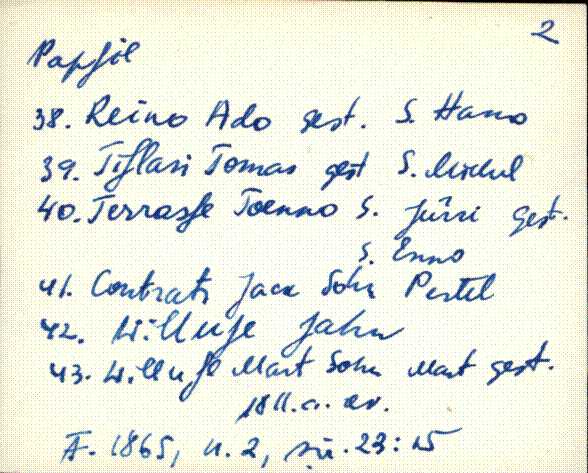 2
38. Reino Ado gest. S. Hans
39. Tomas gest S. Mickel
40. Terrasse Toenno S. Jürri gest.
S. Enno
41. Contrati Jaca Sohn Pertel
42. Willuse Jahn
43. Willuse Mart Sohn Mart gest.
1811. a. rv.
F. 1865, n. 2, sü. 23:15